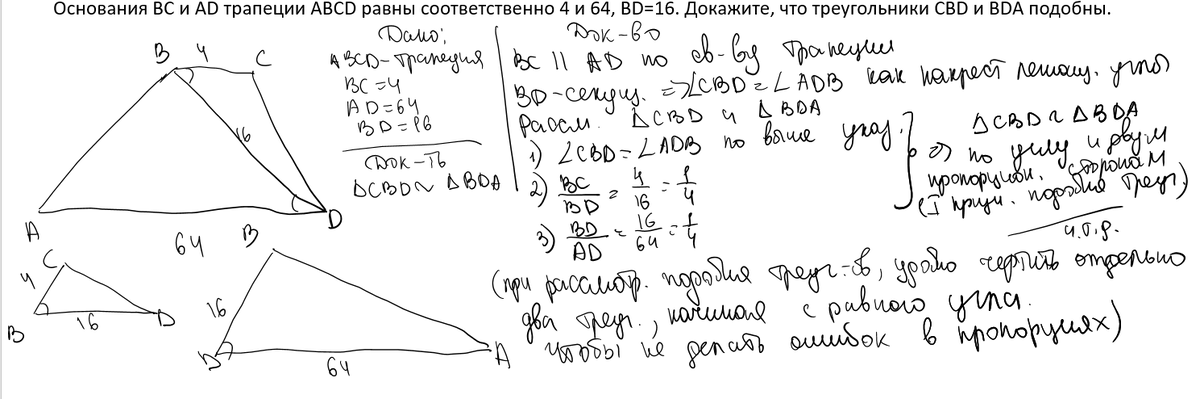 Основания BC и AD трапеции ABCD равны соответственно 4 и 64, BD=16. Докажите, что треугольники CBD и BDA подобны.
B 4 C
16
A 64 D
Дано:
ABCD-трапеция
BC=4
AD=64
BD=16
Док-ть
△CBD ~ △BDA
Док-во
BC || AD по св-ву трапеции
BD-секущ. => ∠CBD = ∠ADB как накрест лежащ. углы
Рассм. △CBD и △BDA
1) ∠CBD = ∠ADB по выше указ.
2) BC/BD = 4/16 = 1/4
3) BD/AD = 16/64 = 1/4
△CBD ~ △BDA
=> по углу и двум
пропорцион. сторонам
(I призн. подобия треуг.)
ч.т.д.
C
4
B 16 D
B
16
D 64 A
(при рассмотр. подобия треуг-в, удобно чертить отдельно
два треуг., начиная с равного угла.
чтобы не делать ошибок в пропорциях)